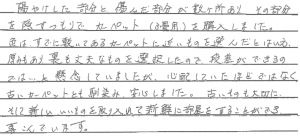 陽やけした部分と傷んだ部分が数ヶ所あり その部分
を隠すつもりで カーペット(3畳用)を購入しました。
色はすでに敷いてあるカーペットに近いものを選んだとはいえ、
厚みもあり裏も丈夫なものを選択したので 段差ができるの
では…と懸念していましたが、心配していたほどではなく
古いカーペットとも馴染み 安心しました。古いものも大切に、
そして新しいいいものを取り入れて新鮮に部屋をすることができ
喜こんでいます。